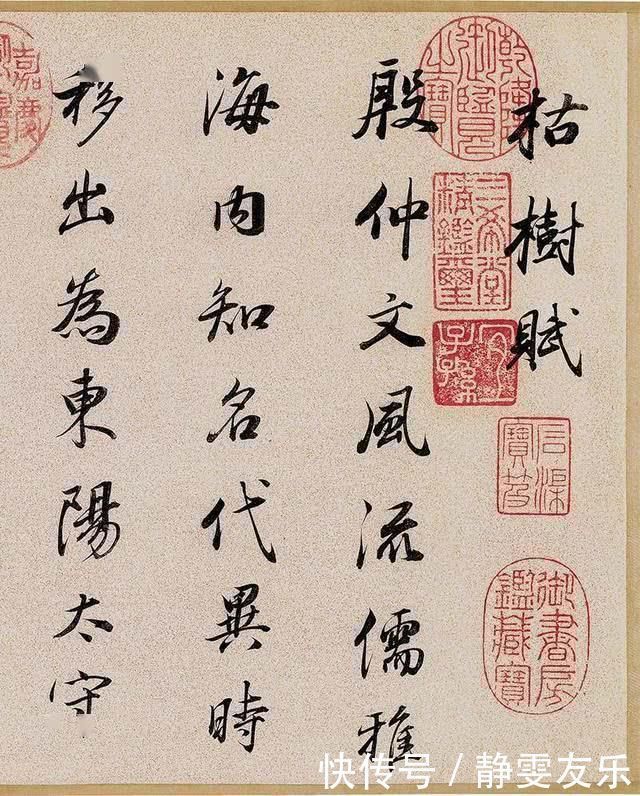 枯樹賦
殷仲文風流儒雅
海内知名代異時
移出為東陽太守
乾隆御覽之寶
三希堂精鑑璽
宜子孫
石渠寶笈
御書房鑑藏寶
嘉慶
快传号 / 静雯友乐